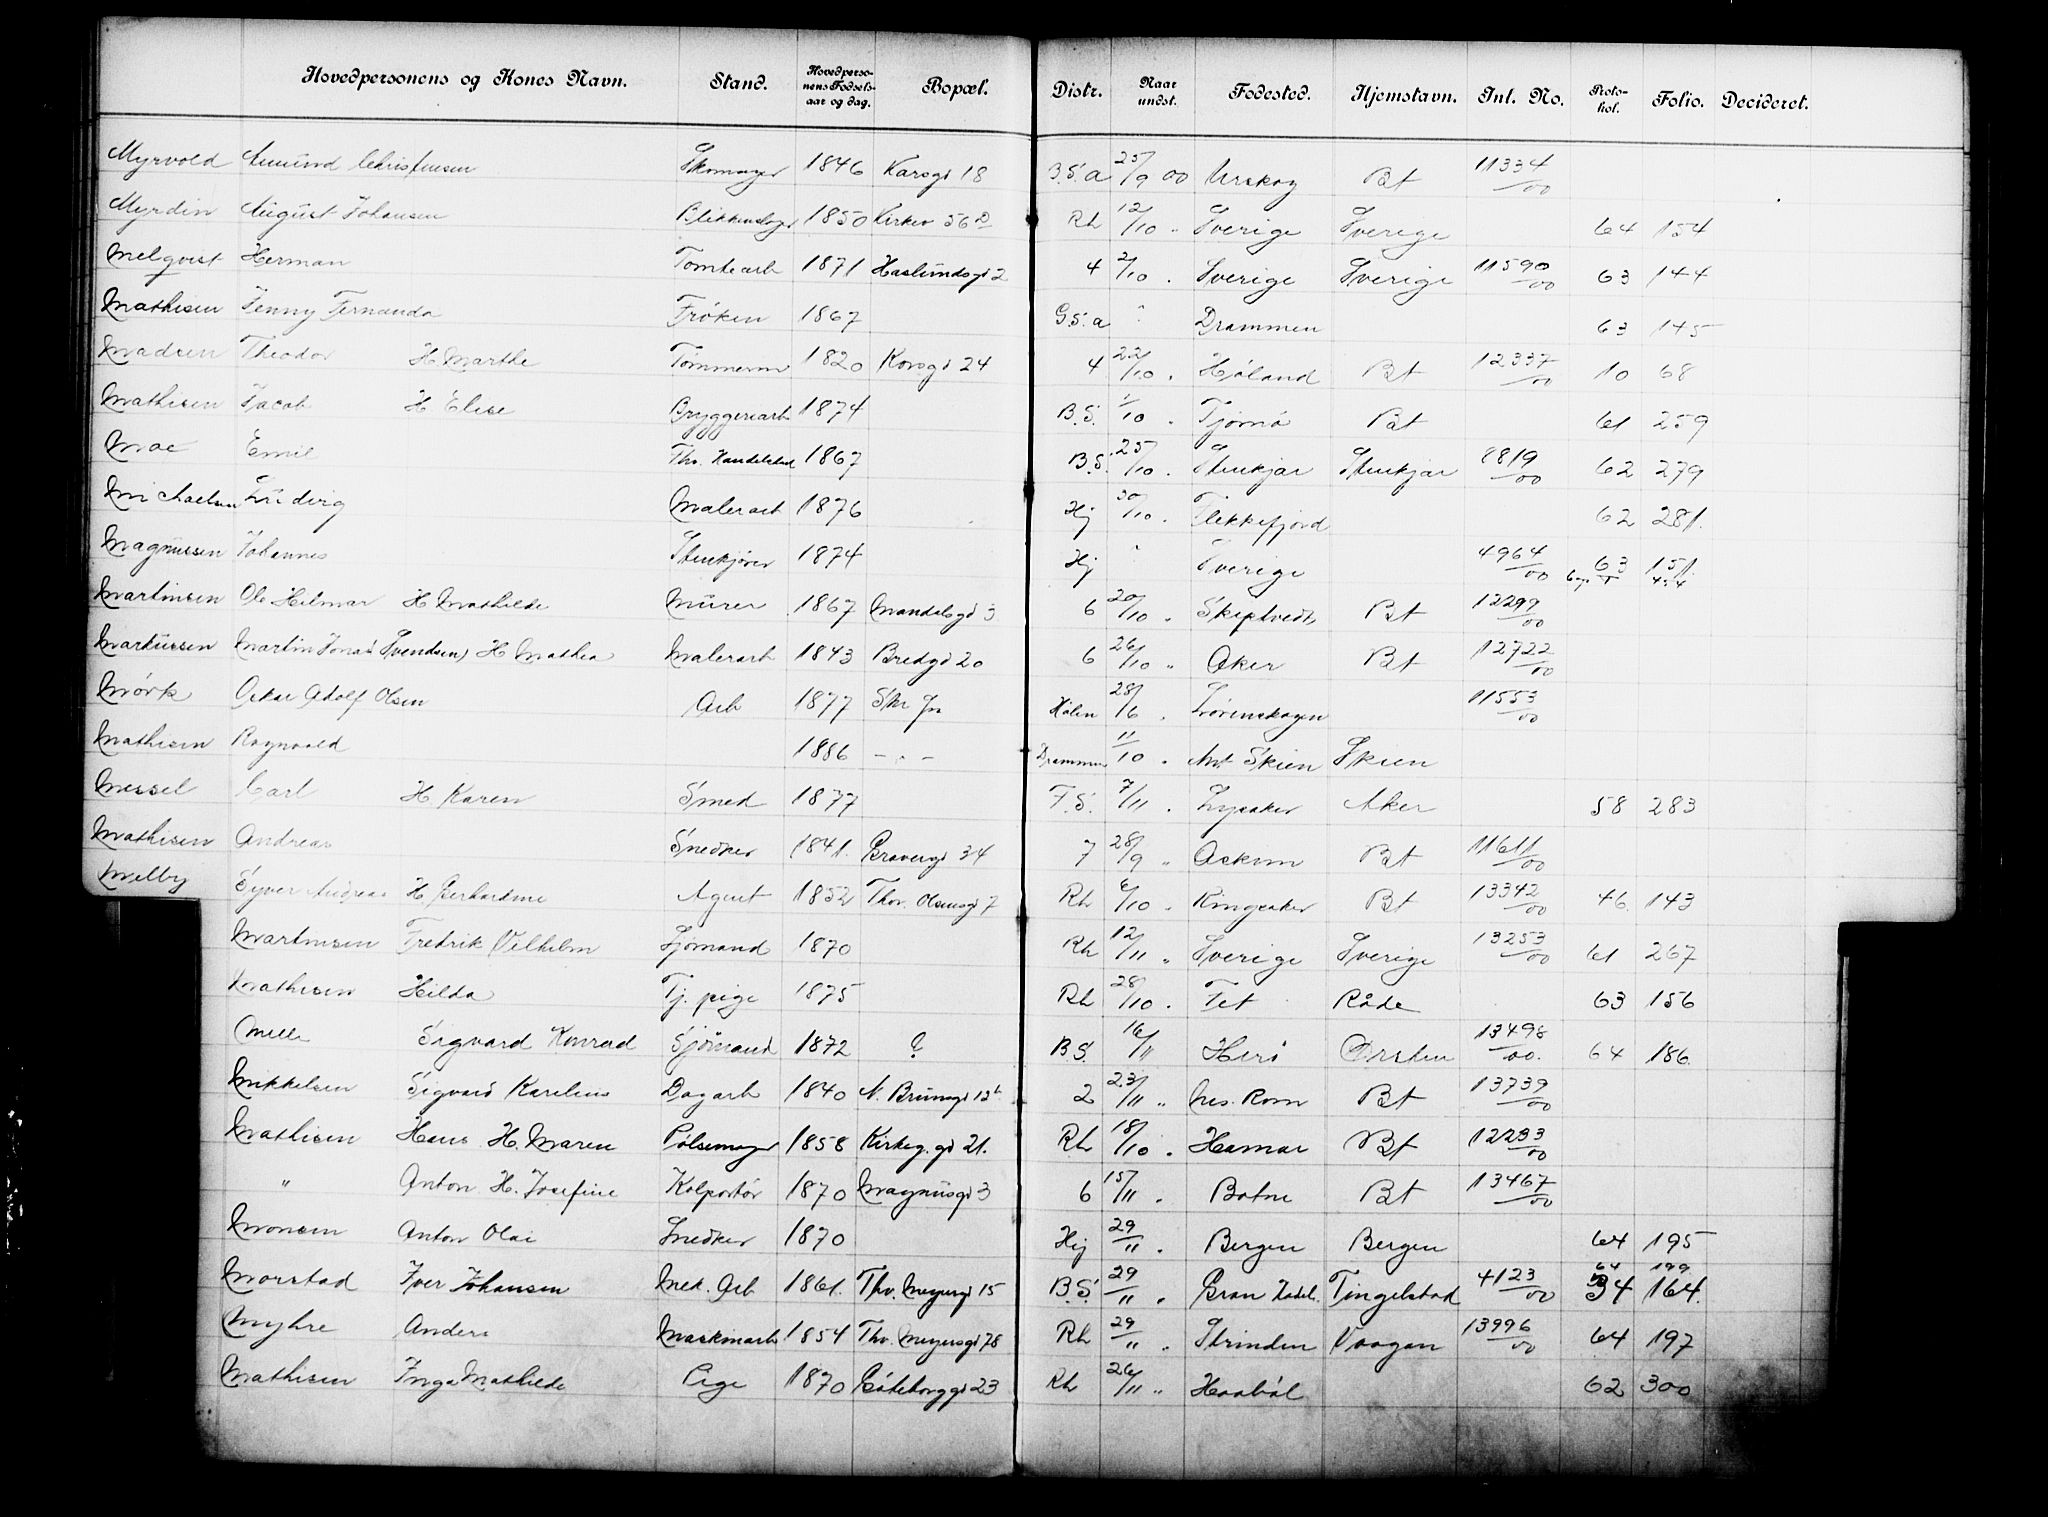 Hovedpersonens og Kones Navn. Stand. Hovedperso-nens Fødsels-aar og dag. Bopæl. Distr. Naar undst. Fødested. Hjemstavn. Int. No. Proto-kol. Folio. Decideret.
Myrvold Amund Christensen Skomager 1846 Karsgd 18 B.S.a 25/9 00 Urskog Bt 11334/00
Myrdin August Johansen Blikkenslager 1850 Kirkev 56 D Rh 12/10 " Sverige Sverige 64 154
Melqvist Herman Tomtearb 1871 Haslundsgd 2 4 2/10 " Sverige Sverige 11590/00 63 144
Mathisen Jenny Fernanda Frøken 1867 G.S.a " Drammen 63 145
Madsen Theodor H Marthe Tømmerm 1820 Korsgd 24 4 22/10 " Høland Bt 12337/00 10 68
Mathisen Jacob H Elise Bryggeriarb 1874 B.S. 1/10 " Tjømø Bt 61 259
Moe Emil Fhv. Handelsbud 1867 B.S. 25/10 " Stenkjær Stenkjær 8819/00 62 279
Michaelsen Ludvig Malerarb 1876 Hj 30/10 " Flekkefjord 62 281.
Magnussen Johannes Stenkjører 1874 Hj " Sverige 4964/00 63 151.
Martinsen Ole Hilmar H Mathilde Murer 1867 Mandalsgd 3 6 20/10 " Skiptvedt Bt 12299/00
Markussen Martin Jonas (Svendsen) H Mathea Malerarb 1843 Bredgd 20 6 26/10 " Aker Bt 12722/00
Mörk Oskar Adolf Olsen Arb 1877 Skr Jn Hølen 28/6 " Lørenskogen 11553/00
Mathisen Ragnvald 1886 - " - Drammen 11/10 " Ant Skien Skien
Messel Carl H Karen Smed 1877 F.S. 7/11 " Lysaker Aker 58 283
Mathisen Andreas Snedker 1841. Pravergd 34 7 28/9 " Askim Bt 11611/00
Melby Syver Andreas H Gerhardine Agent 1852 Thor. Olsensgd 7 Rh 6/10 " Ringsaker Bt 13342/00 46. 143
Martinsen Fredrik Vilhelm Sjømand 1870 Rh 12/11 " Sverige Sverige 13253/00 61 267
Mathisen Hilda Tj. pige 1875 Rh 28/10 " Fet Råde 63 156
Melle Sigvard Konrad Sjømand 1872 ? B.S. 16/11 Herø Ørsten 13498/00. 64 186
Mikkelsen Sigvard Karelius Dagarb 1840 N. Brunsgd 12 b 2 23/11 " Nes. Rom Bt 13739/00
Mathisen Hans H. Maren Pølsemager 1858 Kirkeg. gd 21. Rh 18/10 " Hamar Bt 12233/00
" Anton H. Josefine Kolportør 1870 Magnusgd 3 6 15/11 " Botne Bt 13467/00
Monsen Anton Olai Snedker 1870 Hj 29/11 " Bergen Bergen 64 195
Morstad Iver Johansen Mek. Arb 1861. Thv. Meyersgd 15 B.S. 29/11 " Gran Hadel. Tingelstad 4123/00 64 199 34 164.
Myhre Anders Maskinarb 1854 Thv. Meyersgd 78 Rh 29/11 " Strinden Vaagan 13996/00 64 197
Mathisen Inga Mathilde Pige 1870 Gøteborggd 23 Rh 26/11 " Haabøl 62 300